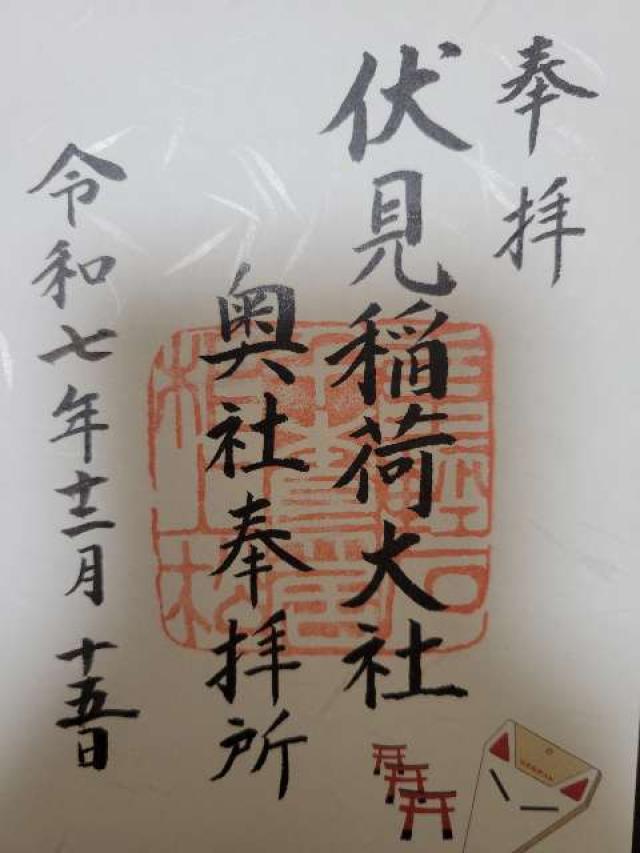 奉拝
伏見稲荷大社
奥社奉拝所
令和七年十二月十五日